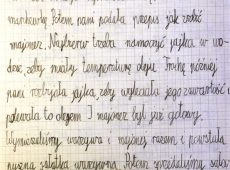 marchewkę. Potem pani podała przepis jak zrobić
majonez. Najpierw trzeba namoczyć jajka w wo-
dzie, żeby miały temperaturę oleju. Trochę później
pani rozbijała jajka, żeby wyleciała jego zawartość i
polewała to olejem I majonez był już gotowy.
Wymieszaliśmy warzywa i majonez razem i powstała
pyszna sałatka warzywna. Potem zjedliśmy sała-